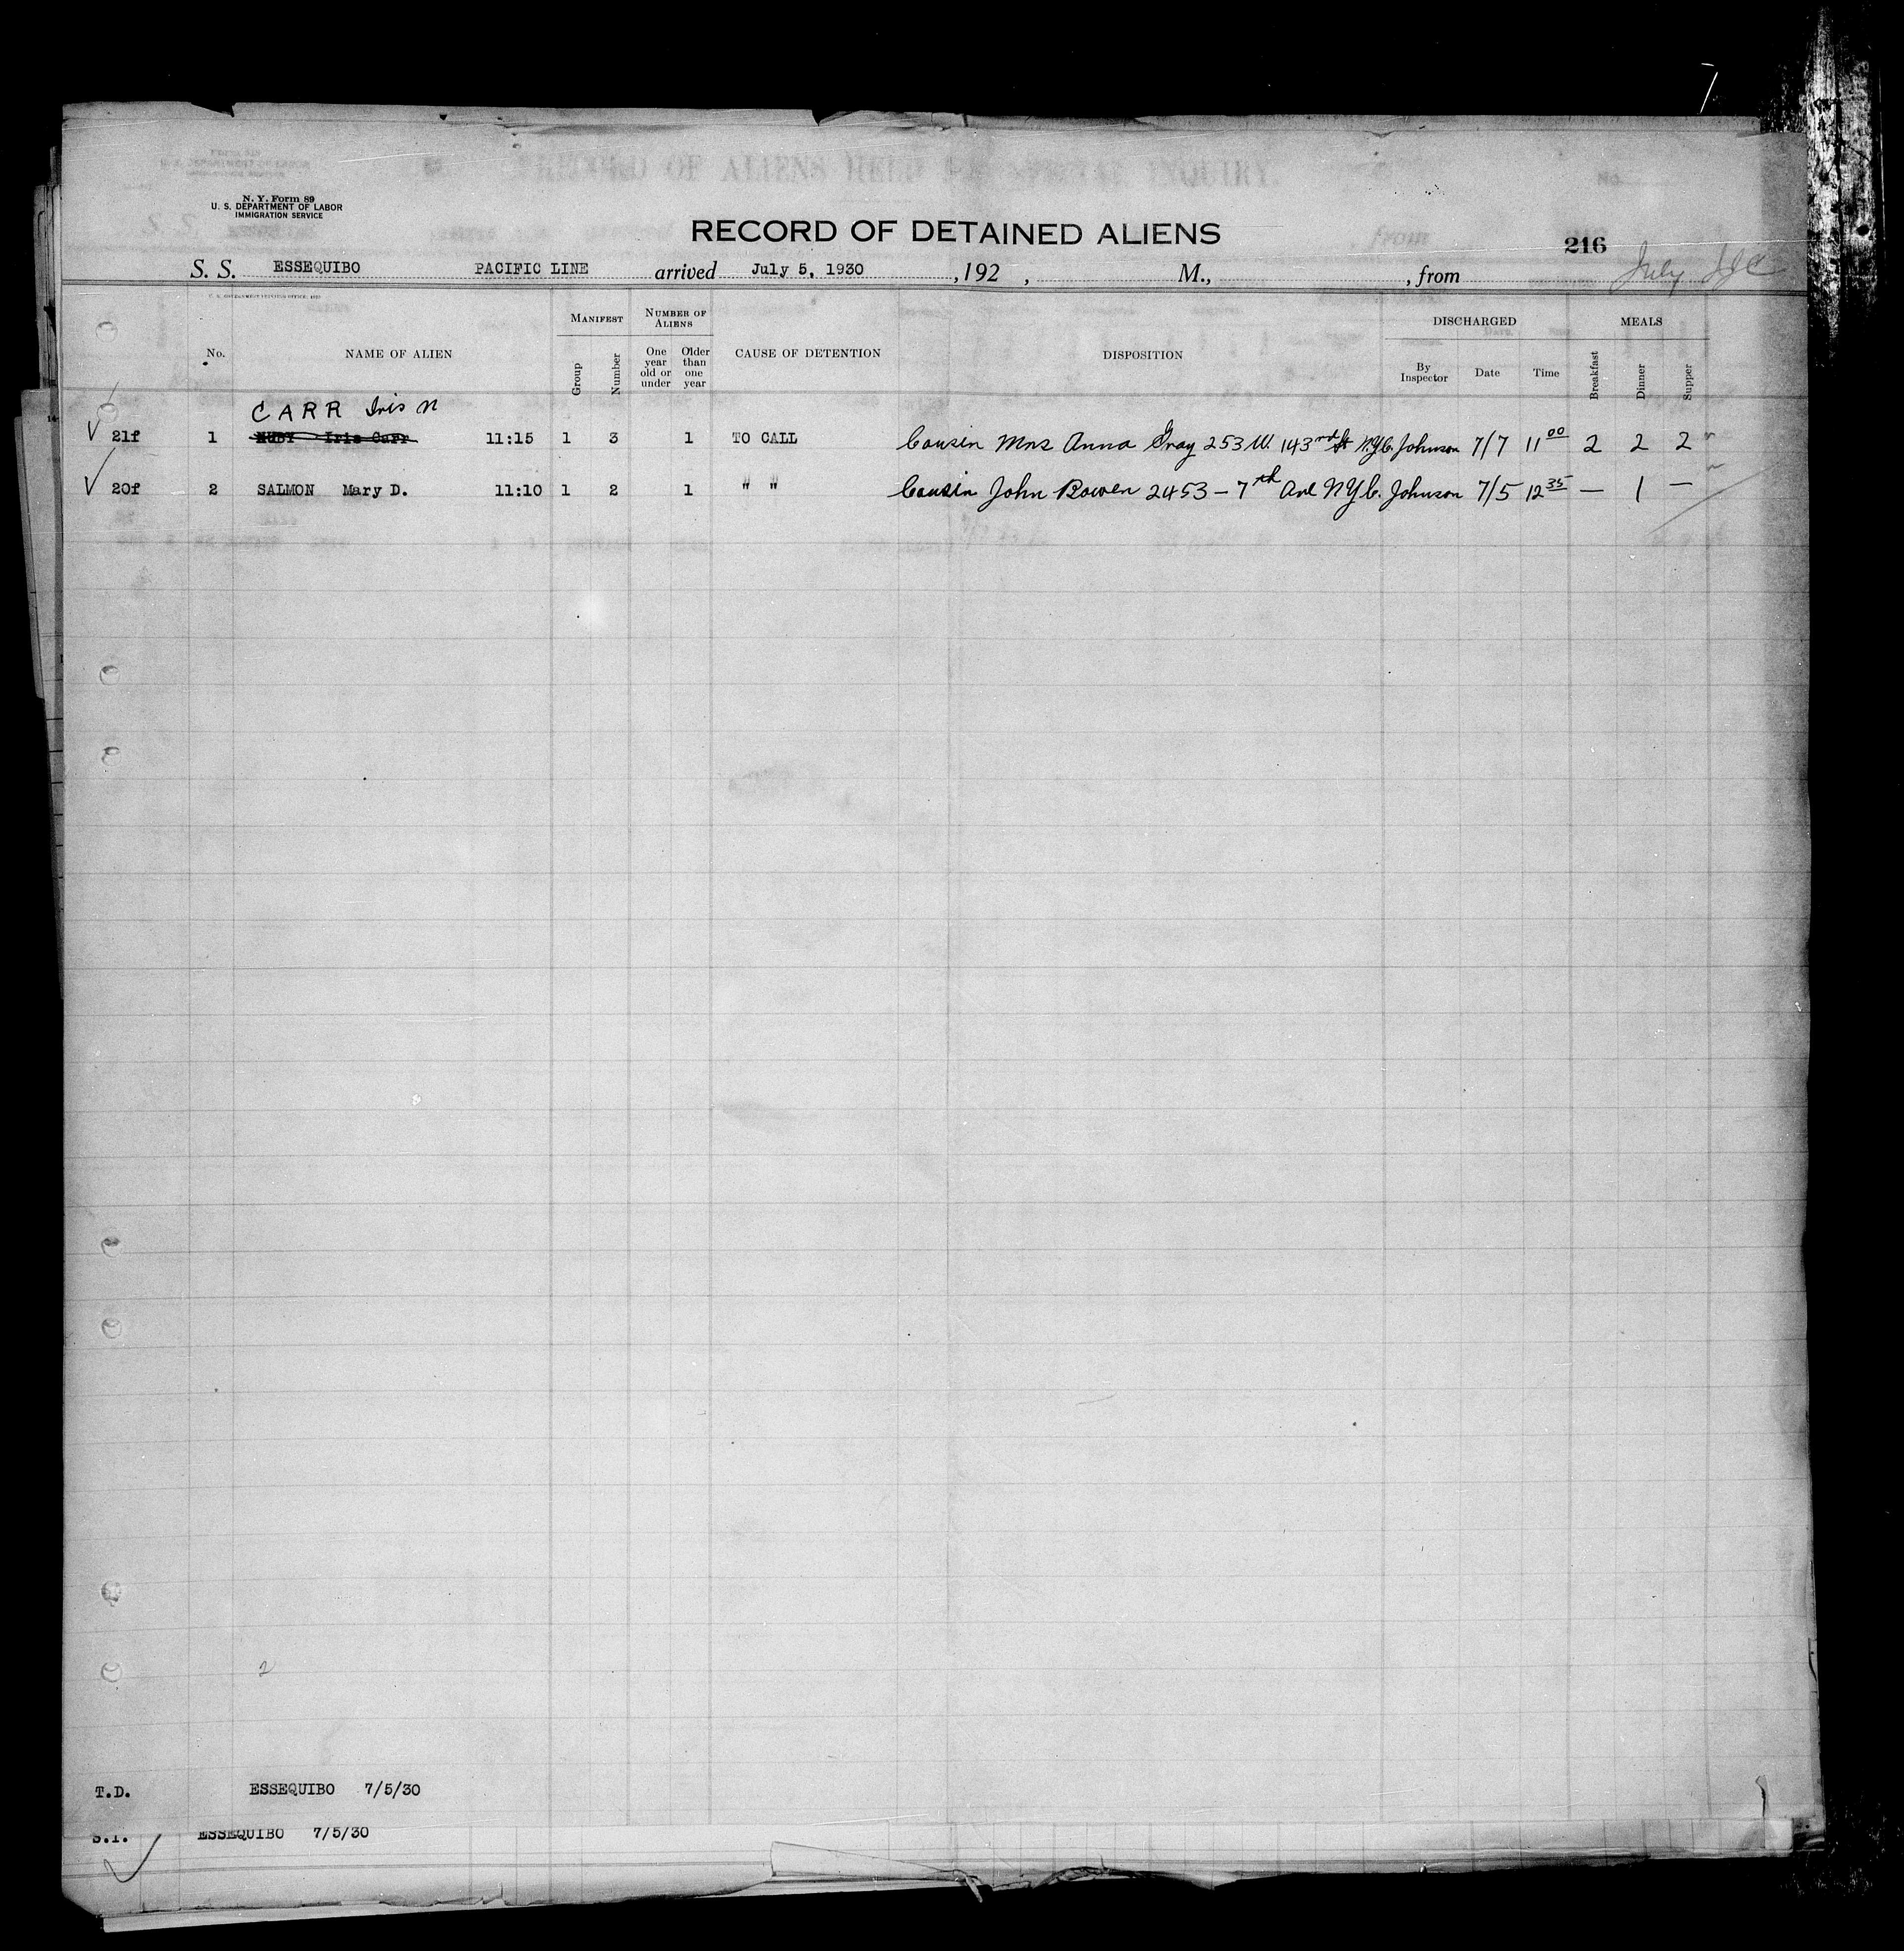 7
N. Y. Form 89
U. S. DEPARTMENT OF LABOR
IMMIGRATION SERVICE
RECORD OF DETAINED ALIENS
216
S. S. ESSEQUIBO PACIFIC LINE arrived July 5, 1930 , 192 , M., , from July
MANIFEST NUMBER OF ALIENS DISCHARGED MEALS
No. NAME OF ALIEN Group Number One year old or under Older than one year CAUSE OF DETENTION DISPOSITION By Inspector Date Time Breakfast Dinner Supper
CARR Iris N
21f 1 MUBY Iris Carr 11:15 1 3 1 TO CALL Cousin Mrs Anna Gray 253 W. 143rd St N.Y.C. Johnson 7/7 11 00 2 2 2
20f 2 SALMON Mary D. 11:10 1 2 1 " " Cousin John Bowen 2453 - 7th Ave N.Y.C. Johnson 7/5 12 35 — 1 —
2
T.D. ESSEQUIBO 7/5/30
S.I. ESSEQUIBO 7/5/30